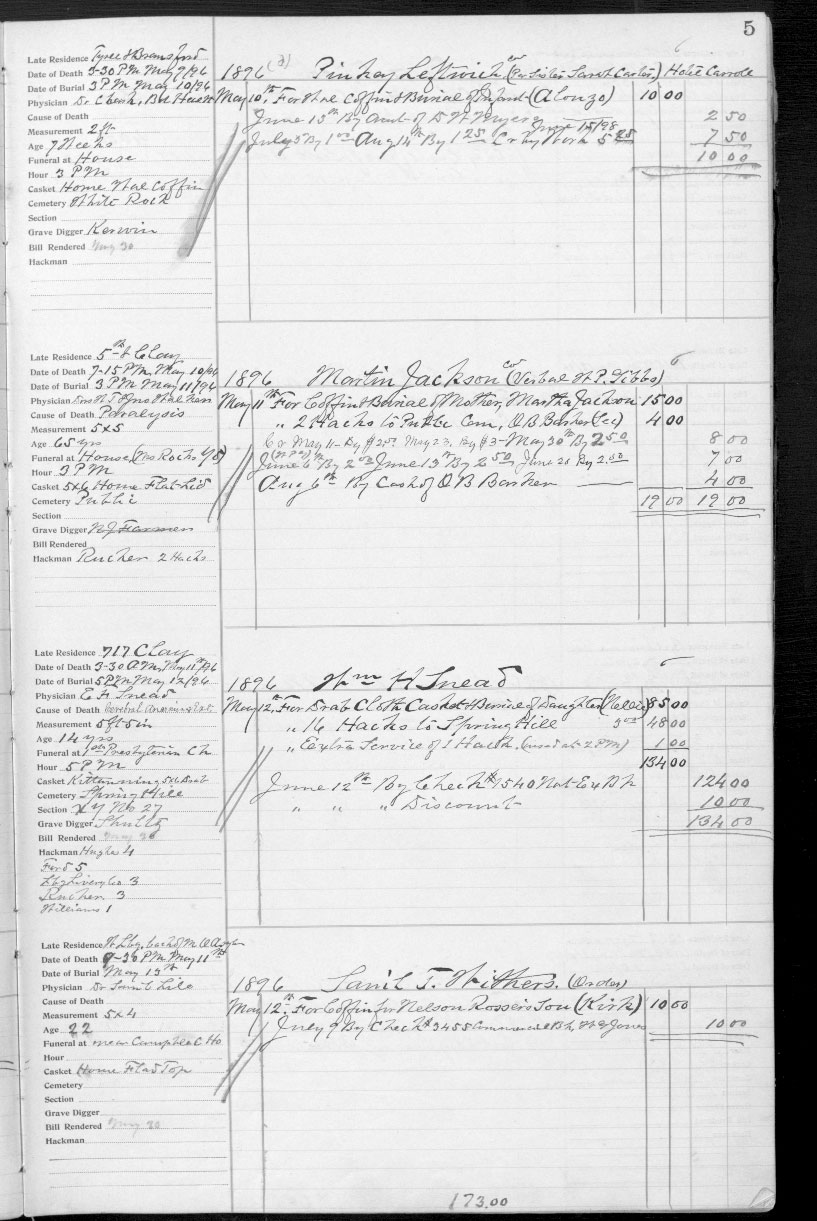 5
Late Residence Tyree & Bransford
Date of Death 5-30 PM May 9/96
Date of Burial 3 PM May 10/96
Physician Dr Cheek,
Cause of Death
Measurement 2 ft
Age 7 Weeks
Funeral at House
Hour 3 PM
Casket Home Wal Coffin
Cemetery White Rock
Section
Grave Digger Kerwin
Bill Rendered May 30
Hackman
1896 Pinkey Leftwich (For Sister Sarah Carter) Hotel Carroll
May 10th For Wal Coffin & Burial of Infant (Alonzo) 10 00
June 15th By acct of D W Myers 2 50
July 3 By 1 00 Aug 14th By 1 25 7 50
10 00
Late Residence 5th & Clay
Date of Death 7-15 PM, May 10/96
Date of Burial 3 PM May 11/96
Physician
Cause of Death Paralysis
Measurement 5x5
Age 65 yrs
Funeral at House
Hour 3 PM
Casket 5x6 Home Flat Lid
Cemetery Public
Section
Grave Digger
Bill Rendered
Hackman Rucker 2 Hacks
1896 Martin Jackson (Verbal W.P. Tibbs)
May 11th For Coffin & Burial of Mother, Martha Jackson 15 00
" 2 Hacks to Public Cem, O B Barker 4 00
Cr May 11- By $2.50 May 23, By $3- May 30th By 2 50 8 00
June 6th By 2 00 June 13th By 2 50 June 20 By 2.50 7 00
Aug 6th By Cash of O B Barker 4 00
19 00 19 00
Late Residence 717 Clay
Date of Death 3-30 AM, May 11th/96
Date of Burial 5 PM May 12/96
Physician E H Snead
Cause of Death
Measurement 5 ft 5 in
Age 14 yrs
Funeral at 1st Presbyterian Ch
Hour 5 PM
Casket Kittanning 5x6 Drab
Cemetery Spring Hill
Section X Y No 27
Grave Digger Shultz
Bill Rendered May 30
Hackman Hughes 4
Ford 5
Lbg Livery Co 3
Rucker 3
Williams 1
1896 Wm H Snead
May 12th For Drab Cloth Casket & Service of Daughter (Nellie) 85 00
" 16 Hacks to Spring Hill 3 00 48 00
" Extra Service of 1 Hack 1 00
134 00
June 12th By Check # 1540 Nat Ex Bk 124 00
" " " Discount 10 00
134 00
Late Residence W Lbg,
Date of Death 9-30 PM May 11th
Date of Burial May 13th
Physician Dr Saml Lile
Cause of Death
Measurement 5x4
Age 22
Funeral at near Campbell C Ho
Hour
Casket Home Flat Top
Cemetery
Section
Grave Digger
Bill Rendered May 30
Hackman
1896 Saml T. Withers. (Order)
May 12th For Coffin for Nelson Rosser's Son (Kirk) 10 00
July 9 By Check # 3455 Commercial Bk 10 00
173.00